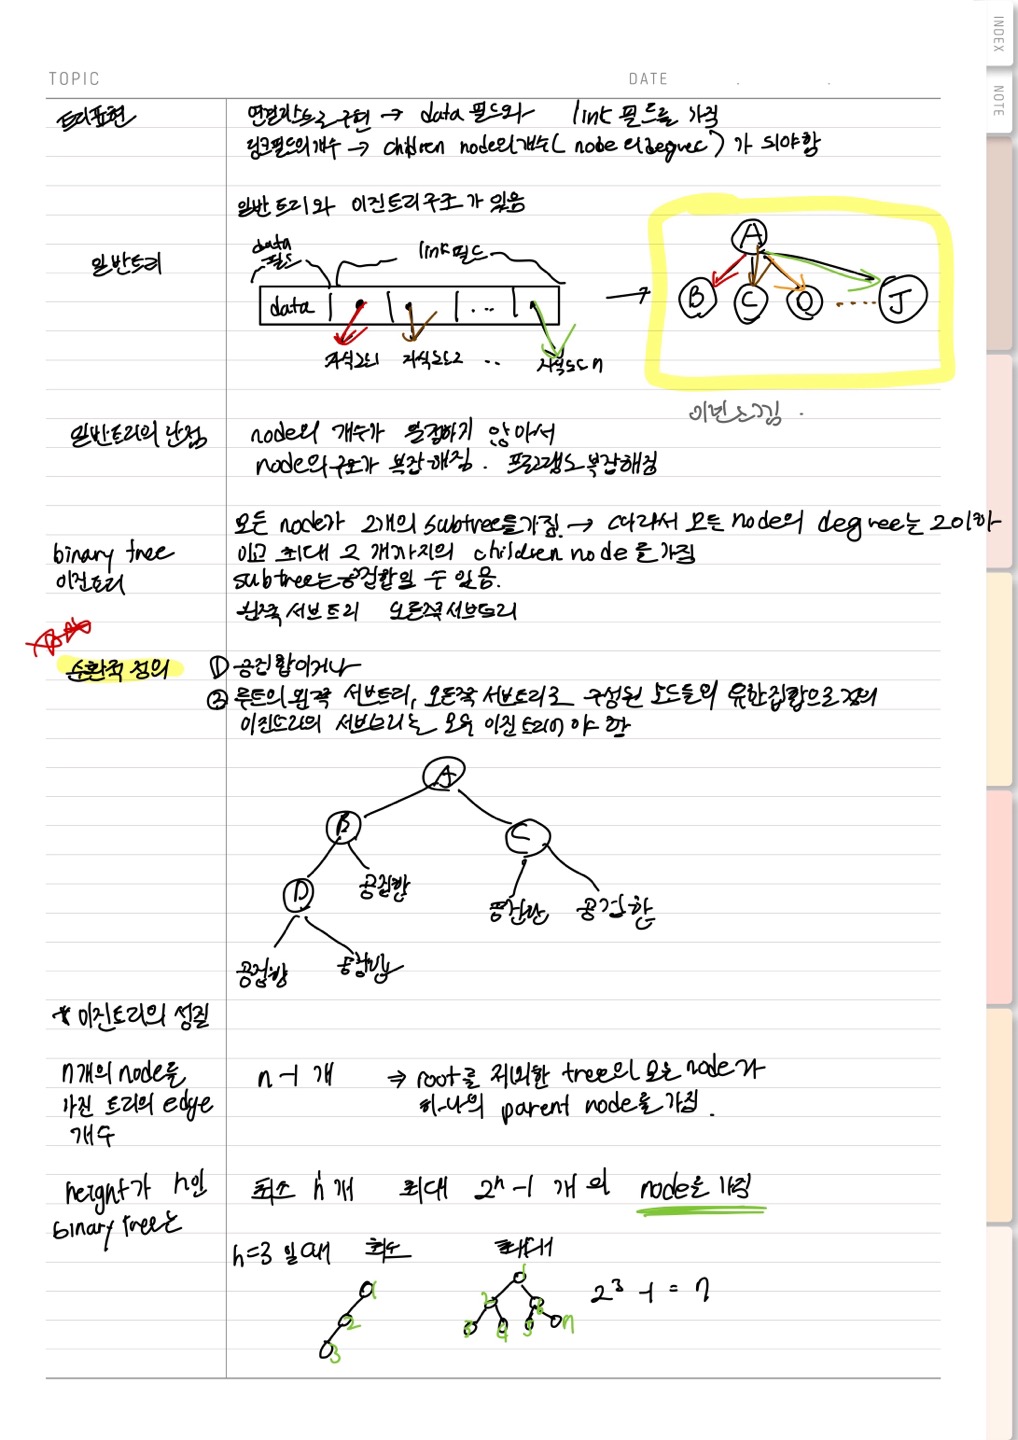 TOPIC
DATE
INDEX
NOTE
트리표현
연결리스트로 구현 → data 필드와 link 필드를 가짐
링크필드의개수 → children node의개수( node의degree ) 가 되야함
일반트리와 이진트리구조가 있음
일반트리
data 필드
link필드
data
...
자식노드1 자식노드2 .. 자식노드n
→
A
B C D ..... J
이런느낌.
일반트리의 난점
node의 개수가 일정하지 않아서
node의구조가 복잡해짐. 프로그램도 복잡해짐
binary tree
이진트리
모든 node가 2개의 subtree를가짐. → 따라서 모든 node의 degree는 2이하
이고 최대 2개까지의 children node를 가짐
subtree는공집합일 수 있음.
왼쪽 서브트리 오른쪽서브트리
순환적 정의
① 공집합이거나
② 루트의 왼쪽 서브트리, 오른쪽 서브트리로 구성된 노드들의 유한집합으로 정의
이진트리의 서브트리는 모두 이진트리여야 함
A
B C
D 공집합 공집합 공집합
공집합 공집합
* 이진트리의 성질
n개의 node를
가진 트리의 edge
개수
n-1 개 ⇒ root를 제외한 tree의 모든 node가
하나의 parent node를 가짐.
height가 h인
binary tree는
최소 h개 최대 2ʰ-1 개의 node를 가짐
h=3 일때 최소 최대
1
2
3
1
2 6
3 4 5 7
2³ -1 = 7